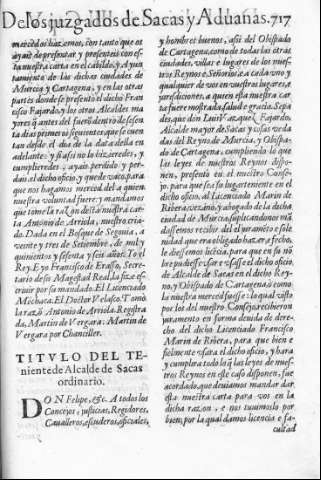 De los juzgados de Sacas y Aduanas. 717
merced os hizemos, con tanto que os
ayais de presentar y presenteis con es-
ta nuestra carta en el cabildo, y Ayun
tamiento de las dichas ciudades de
Murcia y Cartagena, y en las otras
partes donde se presentò el dicho Fran
cisco Fajardo, y los otros Alcaldes ma
yores q̃ antes del fuerõ dentro de sesen
ta dias primeros siguientes, que se cuen
tan desde el dia de la data della en
adelante: y si assi no lo hizieredes, y
cumplieredes, ayais perdido y per-
dais, el dicho oficio, y quede vaco, para
que nos hagamos merced del a quien
nuestra voluntad fuere: y mandamos
que tome la razon desta nuestra car-
ta Antonio de Arriola, nuestro cria-
do. Dada en el Bosque de Segouia, a
veinte y tres de Setiembre, de mil y
quinientos y sesenta y seis años. Yo el
Rey. E yo Francisco de Erasso, Secre-
tario de su Magestad Real, la fize es-
criuir por su mandado. El Licenciado
Michaca. El Doctor Velasco. Tomó
la razõ, Antonio de Arriola. Registra
da, Martin de Vergara. Martin de
Vergara por Chanciller.
TITVLO DEL TE-
niente de Alcalde de Sacas
ordinario.
DON Felipe, &c. A todos los
Concejos, justicias, Regidores,
Caualleros, escuderos, oficiales,
y hombres buenos, assi del Obispado
de Cartagena, como de todas las otras
ciudades, villas e lugares de los nues-
tros Reynos e Señorios, e a cada vno y
qualquier de vos en vuestros lugares, e
jurisdiciones, a quien esta nuestra car
ta fuere mostrada, salud e gracia. Sepa
des, que don Luis Vazquez Fajardo,
Alcalde mayor de Sacas y cosas veda
das del Reyno de Murcia, y Obispa-
do de Cartagena, cumpliendo lo que
las leyes de nuestros Reynos dispo-
nen, presentò en el nuestro Conse-
jo, para que sea su lugarteniente en el
dicho oficio, al Licenciado Marin de
Ribera, vezino, y abogado de la dicha
ciudad de Murcia, suplicandonos mã
dassemos recibir del el juramẽto e sole
nidad que era obligado hazer, e fecho,
le diessemos licẽcia, para que en su nõ
bre pudiesse vsar e vsasse el dicho oficio
de Alcalde de Sacas en el dicho Rey-
no, y Obispado de Cartagena, ò como
la nuestra merced fuesse: lo qual visto
por los del nuestro Consejo, recibieron
juramento en forma deuida de dere-
cho del dicho Licenciado Francisco
Marin de Ribera, para que bien e
fielmente vsara el dicho oficio, y hara
y cumplira todo lo q̃ las leyes de nues-
tros Reynos en este caso disponen, fue
acordado, que deuiamos mandar dar
esta nuestra carta para vos en la
dicha razon, e nos tuuimoslo por
bien, por la qual damos licencia e fa-
cultad